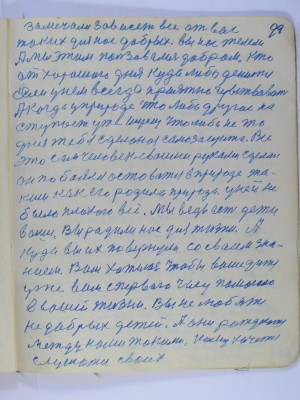 99
замечаем зависет все от вас
таких для нас добрых. вы нас жалеете
А мы этим пользовались добром. Кто
от хорошего дня куда либо денится
Если у нем всегда приятно чувствовать
А когда у природе что либо другое на
ступает уже ищем чтолибо не то
для тебя сделано самозащита. Все
это сам человек своими руками сделан
он побоялся остоватся в природе та-
ким как его родила природа. у ней не
было плохого всё. Мы ведь есть дети
ваши. Вы родили нас для жизни. А
куда вы их повернули со своим зна-
нием. Вам хотелось чтобы ваше дитя
уже вам с первого часу помогало
в вашей жизни. Вы не любите
не добрых детей. А они рождаются
между нами такими.
слушати своих